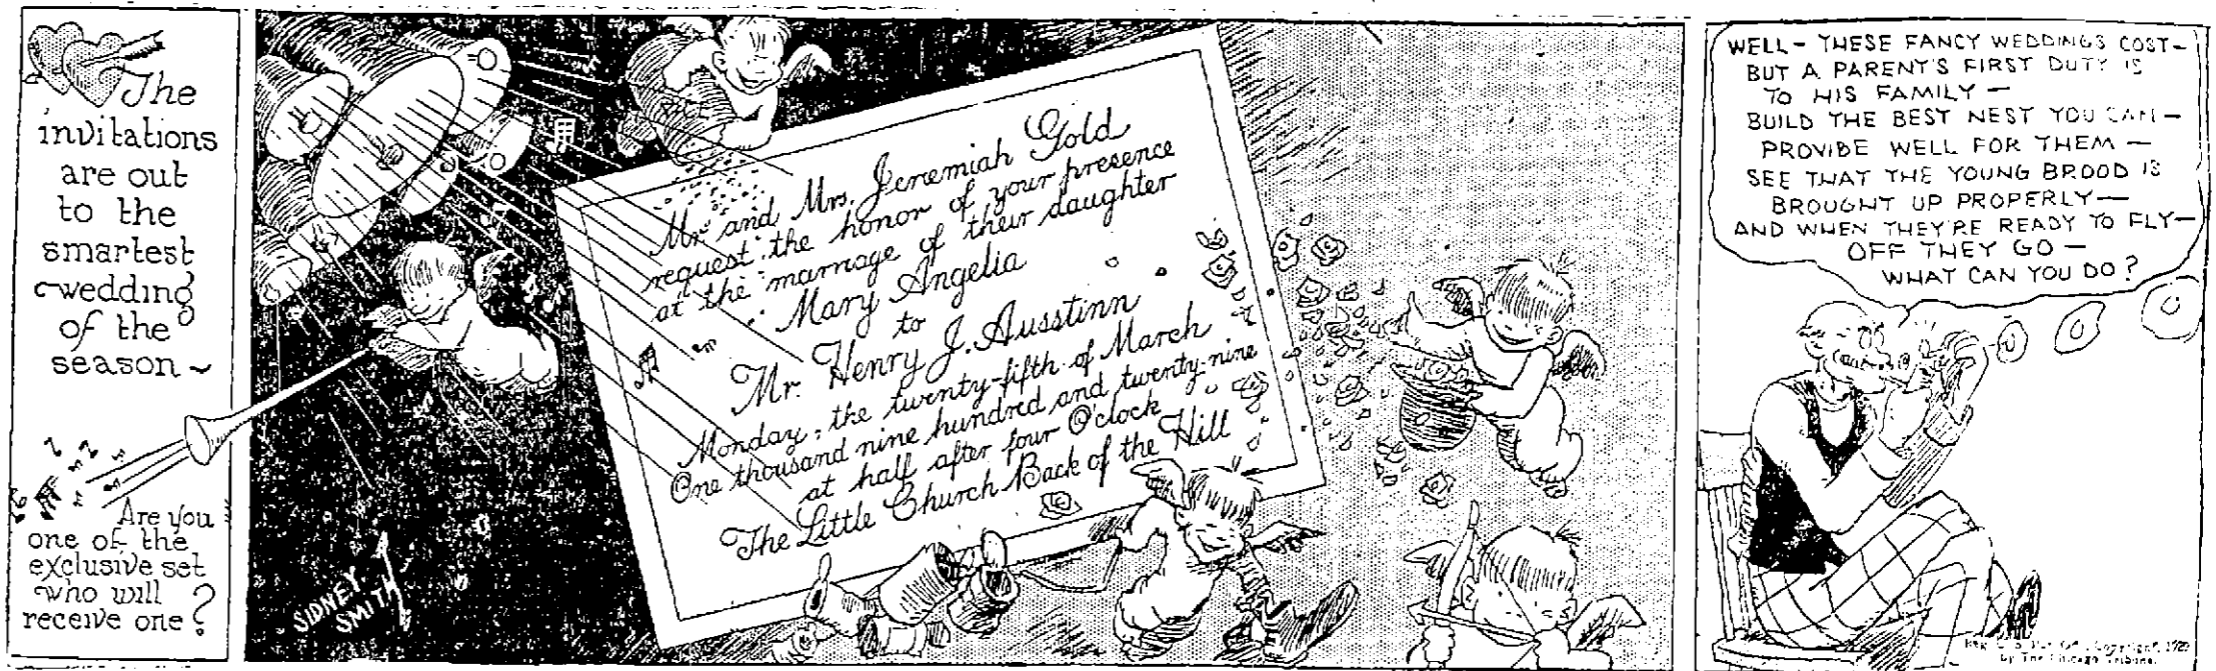 The
invitations
are out
to the
smartest
wedding
of the
season ~
Are you
one of the
exclusive set
who will
receive one?
SIDNEY
SMITH
Mr. and Mrs. Jeremiah Gold
request the honor of your presence
at the marriage of their daughter
Mary Angelia
to
Mr. Henry J. Ausstinn
Monday, the twenty-fifth of March
One thousand nine hundred and twenty-nine
at half after four O'clock
The Little Church Back of the Hill
WELL - THESE FANCY WEDDINGS COST -
BUT A PARENT'S FIRST DUTY IS
TO HIS FAMILY -
BUILD THE BEST NEST YOU CAN -
PROVIDE WELL FOR THEM -
SEE THAT THE YOUNG BROOD IS
BROUGHT UP PROPERLY -
AND WHEN THEY'RE READY TO FLY -
OFF THEY GO -
WHAT CAN YOU DO?
Reg. U. S. Pat. Off.; Copyright, 1929
by The Chicago Tribune.